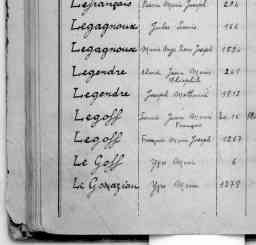 Lefrançois Pierre Marie Joseph 214
Legagnoux Jules Louis 166
Legagnoux Marie Ange Jean Joseph 1894
Legendre Jean Marie 241
Legendre Joseph Mathurin 1812
Legoff Jean Marie
François
Legoff François Marie Joseph 1267
Le Goff Yves Marie 6
Le Gonazion Yves Marie 1279